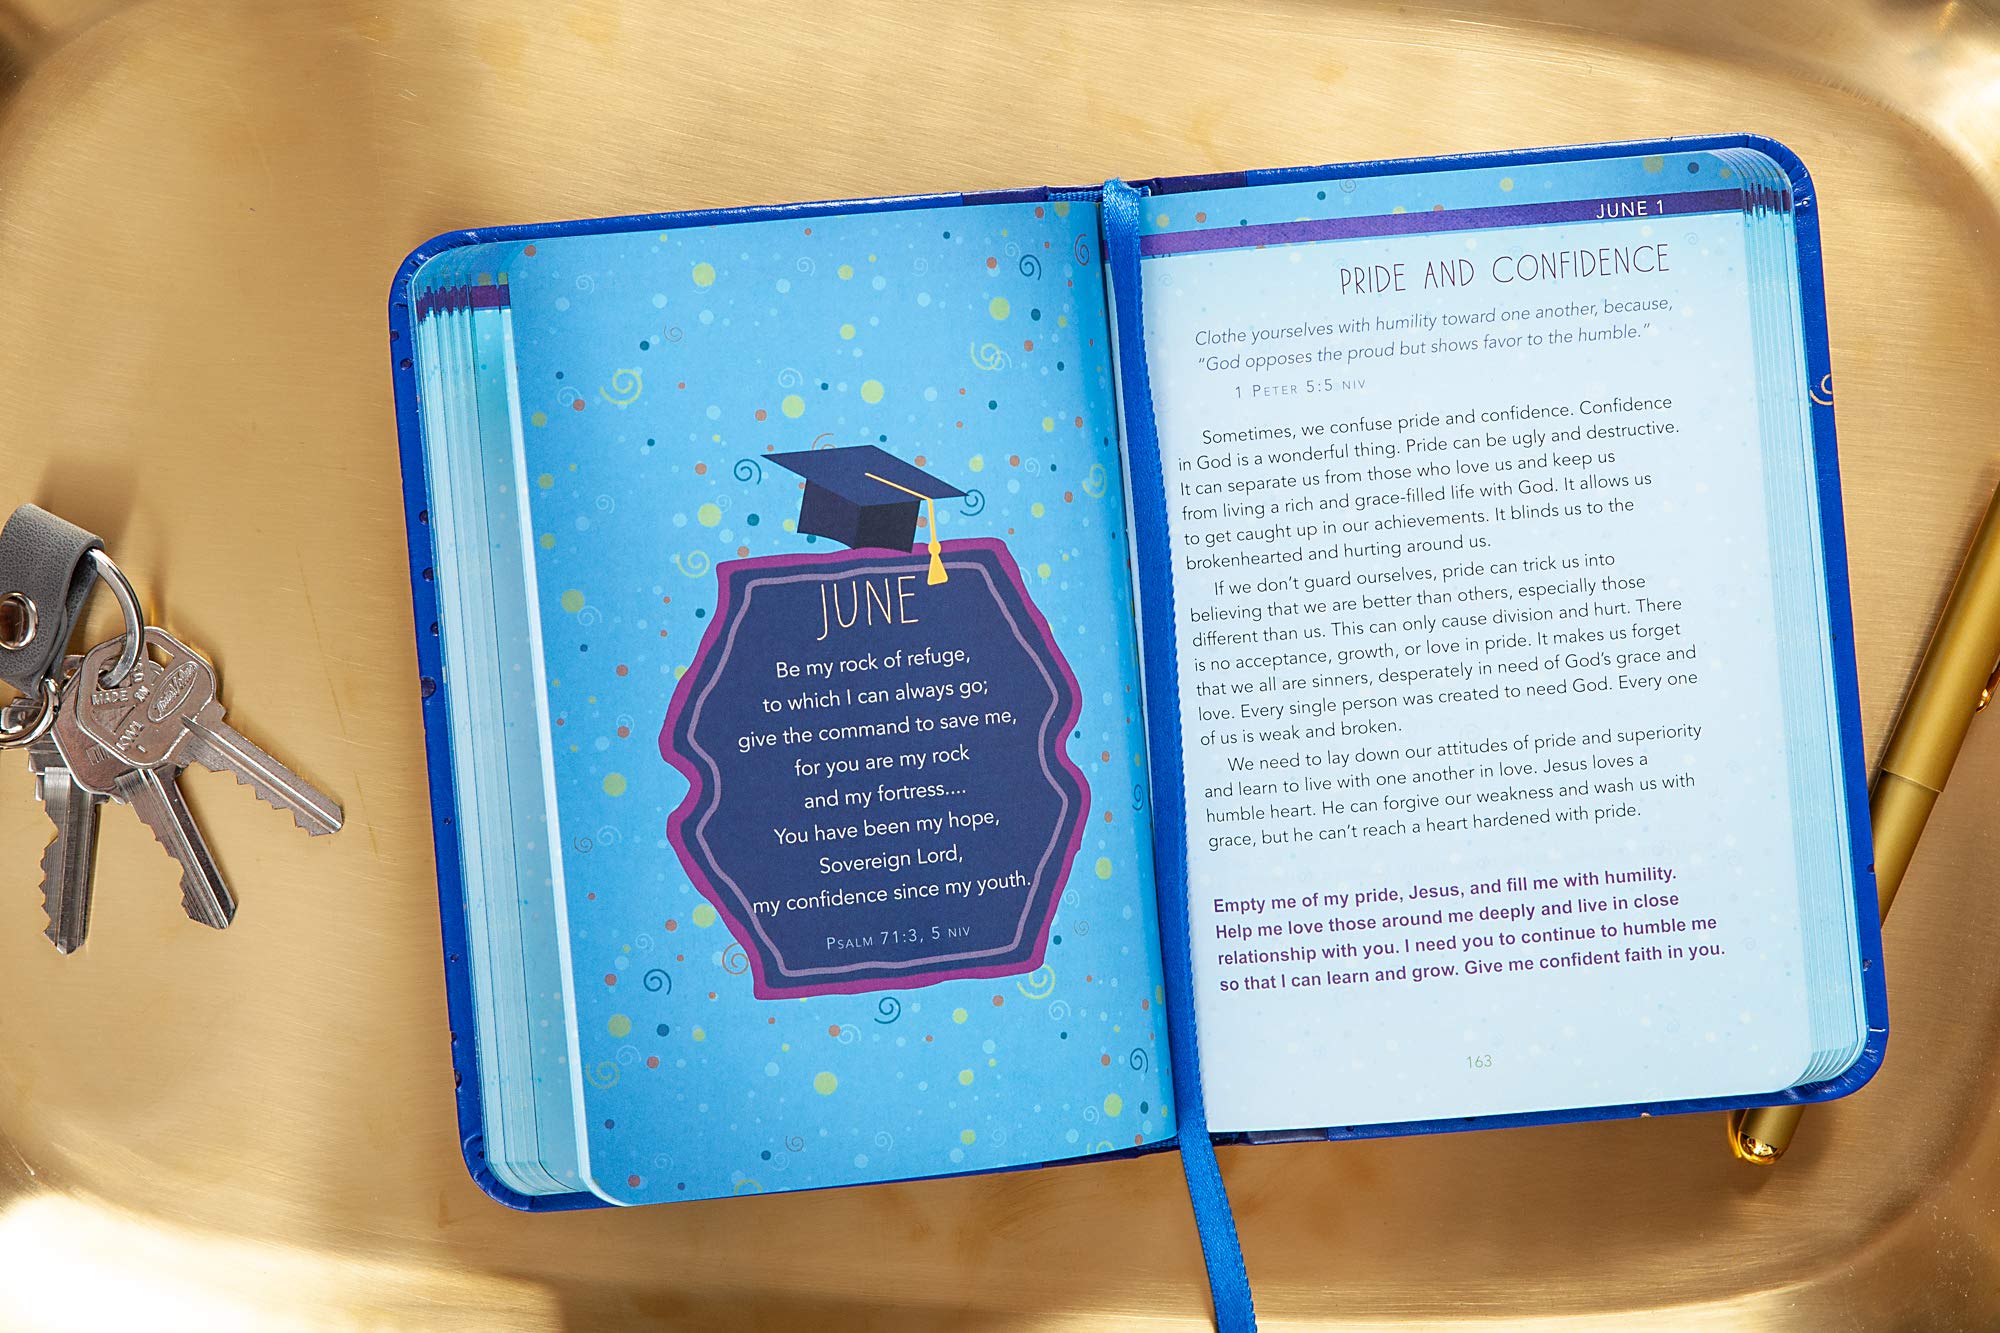 JUNE
Be my rock of refuge,
to which I can always go;
give the command to save me,
for you are my rock
and my fortress....
You have been my hope,
Sovereign Lord,
my confidence since my youth.
PSALM 71:3, 5 NIV
JUNE 1
PRIDE AND CONFIDENCE
Clothe yourselves with humility toward one another, because,
“God opposes the proud but shows favor to the humble.”
1 PETER 5:5 NIV
Sometimes, we confuse pride and confidence. Confidence
in God is a wonderful thing. Pride can be ugly and destructive.
It can separate us from those who love us and keep us
from living a rich and grace-filled life with God. It allows us
to get caught up in our achievements. It blinds us to the
brokenhearted and hurting around us.
If we don’t guard ourselves, pride can trick us into
believing that we are better than others, especially those
different than us. This can only cause division and hurt. There
is no acceptance, growth, or love in pride. It makes us forget
that we all are sinners, desperately in need of God’s grace and
love. Every single person was created to need God. Every one
of us is weak and broken.
We need to lay down our attitudes of pride and superiority
and learn to live with one another in love. Jesus loves a
humble heart. He can forgive our weakness and wash us with
grace, but he can’t reach a heart hardened with pride.
Empty me of my pride, Jesus, and fill me with humility.
Help me love those around me deeply and live in close
relationship with you. I need you to continue to humble me
so that I can learn and grow. Give me confident faith in you.
163
MADE
KW1